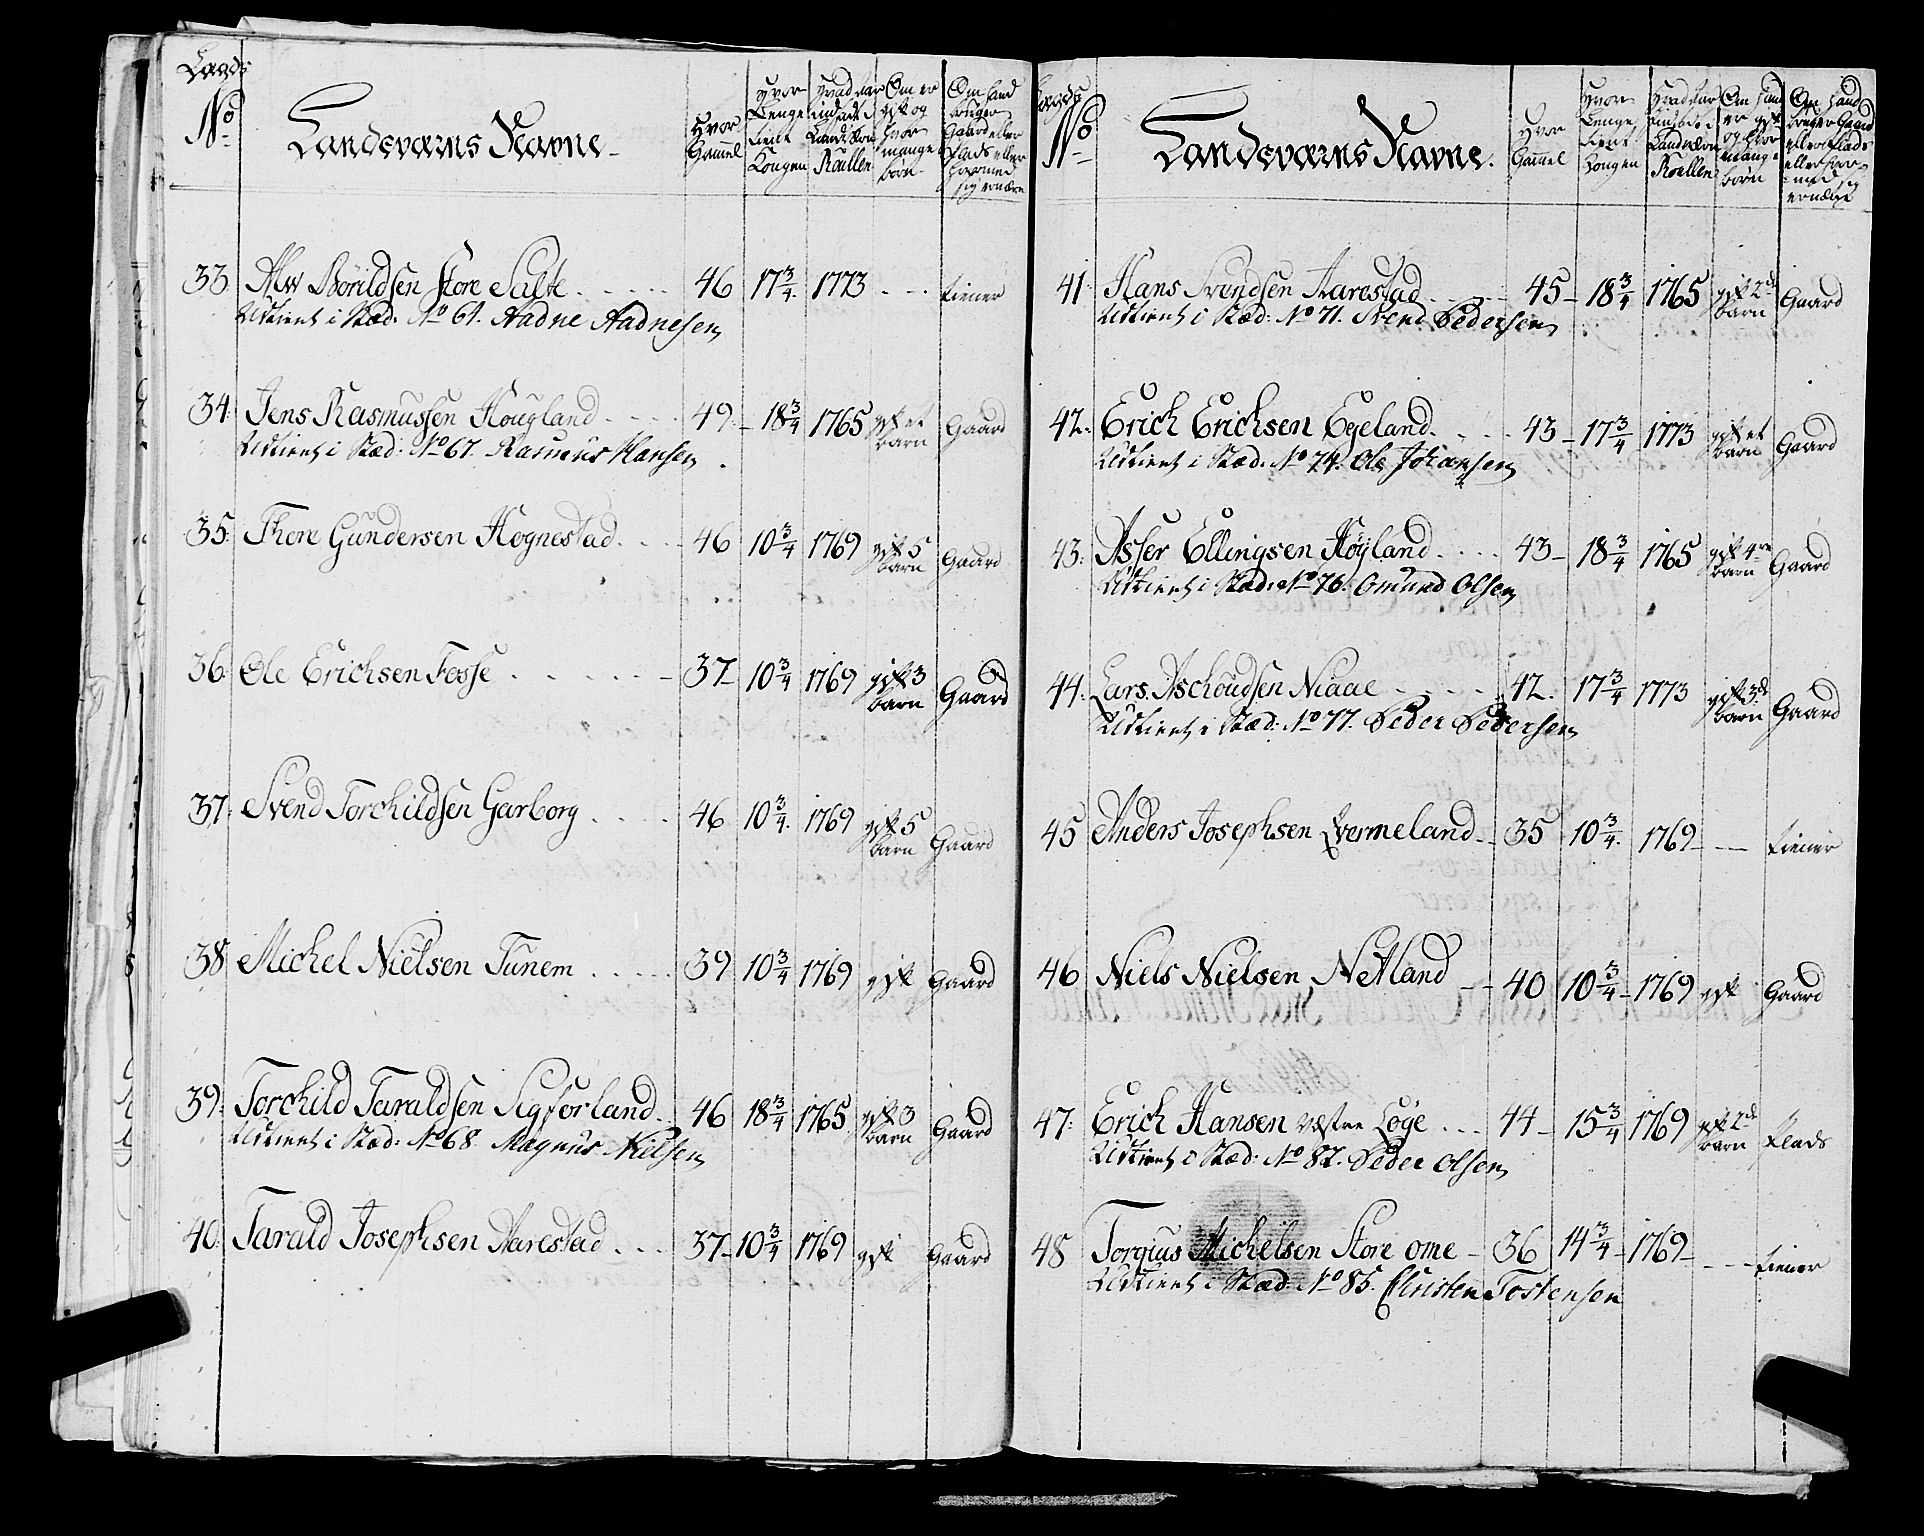 Lægds No
Landsværns Navne
Hvor Gammel
Hvor Længe tient Kongen
Hvad Aar indsadt i Landværn Roullen
Om er gift og hvor mange børn
Om hand bruger Gaard eller Plads eller hvormed sig ernære
33 Børildsen Store Salte 46 17 3/4 1773 tiener
Udtient i Stæd: No 61. Aadne Aadnesen
34 Jens Rasmussen Hougland 49 18 3/4 1765 gift et barn Gaard
Udtient i Stæd: No 67. Rasmus Hansen
35 Thore Gundersen Høgnestad 46 10 3/4 1769 gift 5 barn Gaard
36 Ole Erichsen Fosse 37 10 3/4 1769 gift 3 barn Gaard
37 Svend Torchildsen Garborg 46 10 3/4 1769 gift 5 barn Gaard
38 Michel Nielsen Tunem 39 10 3/4 1769 gift Gaard
39 Torchild Taraldsen Sigforland 46 18 3/4 1765 gift 3 barn Gaard
Udtient i Stæd: No 68 Magnus Nielsen
40 Tarald Josephsen Aarestad 37 10 3/4 1769 gift Gaard
Lægds No
Landsværns Navne
Hvor Gammel
Hvor Længe tient Kongen
Hvad Aar indsadt i Landværn Roellen
Om hand er gift og hvor mange børn
Om hand bruger Gaard eller Plads eller hvormed sig ernære
41 Hans Svendsen Aarestad 45 18 3/4 1765 gift 2de barn Gaard
Udtient i Stæd: No 71. Svend Pedersen
42 Erich Erichsen Egeland 43 17 3/4 1773 gift et barn Gaard
Udtient i Stæd: No 74. Ole Johansen
43 Asser Ellingsen Høyland 43 18 3/4 1765 gift 4re barn Gaard
Udtient i Stæd: No 76. Omund Olsen
44 Lars Aschoudsen Niaae 42 17 3/4 1773 gift 3de barn Gaard
Udtient i Stæd: No 77. Peder Pedersen
45 Anders Josephsen Qvermeland 35 10 3/4 1769 tiener
46 Niels Nielsen Netland 40 10 3/4 1769 gift Gaard
47 Erich Hansen Væstre Løge 44 15 3/4 1769 gift 2de barn Plads
Udtient i Stæd: No 82. Peder Olsen
48 Torgius Michelsen Store ome 36 14 3/4 1769 tiener
Udtient i Stæd: No 85. Christen Tostensen